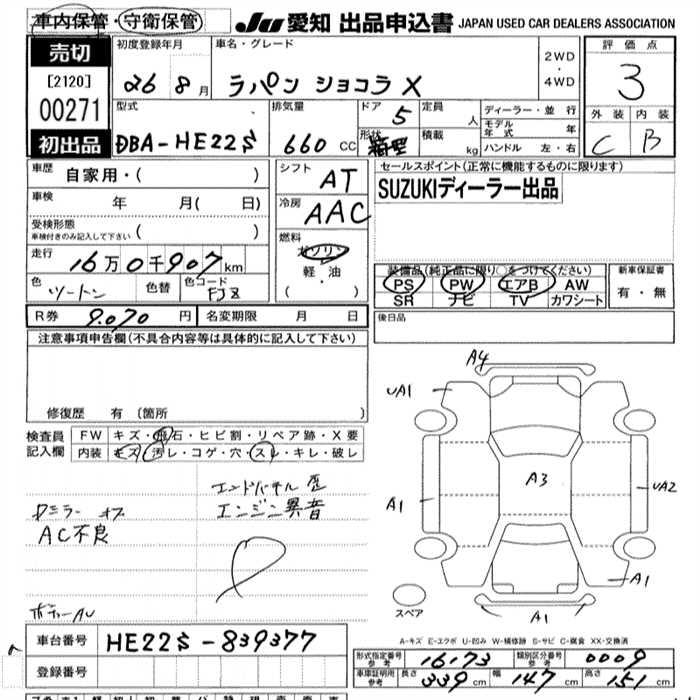 車内保管・守衛保管 JU 愛知 出品申込書 JAPAN USED CAR DEALERS ASSOCIATION
売切
[2120]
00271
初出品
初度登録年月
26 8月
車名・グレード
ラパン ショコラ X
2WD
・
4WD
評価点
3
外装 内装
C B
型式
DBA-HE22S
排気量
660 CC
ドア 5
形状
定員 人
積載 kg
ディーラー・並行
モデル年式 年
ハンドル 左・右
車歴 自家用・( )
車検 年 月( 日)
受検形態
車検付きのみ記入して下さい ( )
走行
16万0千907km
色 ツートン 色替 色コード
シフト AT
冷房 AAC
燃料
ガソリン
軽・油
( )
セールスポイント(正常に機能するものに限ります)
SUZUKIディーラー出品
装備品(純正品に限り○をつけてください)
PS PW エアB AW
SR ナビ TV カワシート
新車保証書
有・無
R券 9,070 円 名変期限 月 日
後日品
注意事項申告欄(不具合内容等は具体的に記入して下さい)
修復歴 有 〔箇所 〕
検査員記入欄
FW キズ・飛石・ヒビ割・リペア跡・X要
内装 キズ・汚レ・コゲ・穴・スレ・キレ・破レ
エンジン異音
AC不良
A4
UA1
A3
A1
UA2
A1
A1
スペア
A-キズ E-エクボ U-凹み W-補修跡 S-サビ C-腐食 XX-交換済
車台番号 HE22S-839377
登録番号
形式指定番号 参考 16173 類別区分番号 参考 0009
車庫証明用 参考 長さ 339cm 幅 147cm 高さ 151cm